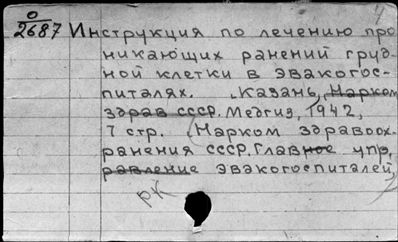 4
0
2687 Инструкция по лечению про
никающих ранений груд-
ной клетки в эвакогос-
питалях. Казань, Нарком
здрав СССР. Медгиз, 1942,
7 стр. (Нарком здравоох-
ранения СССР. Главное упр.
равление эвакогоспиталей)
рк